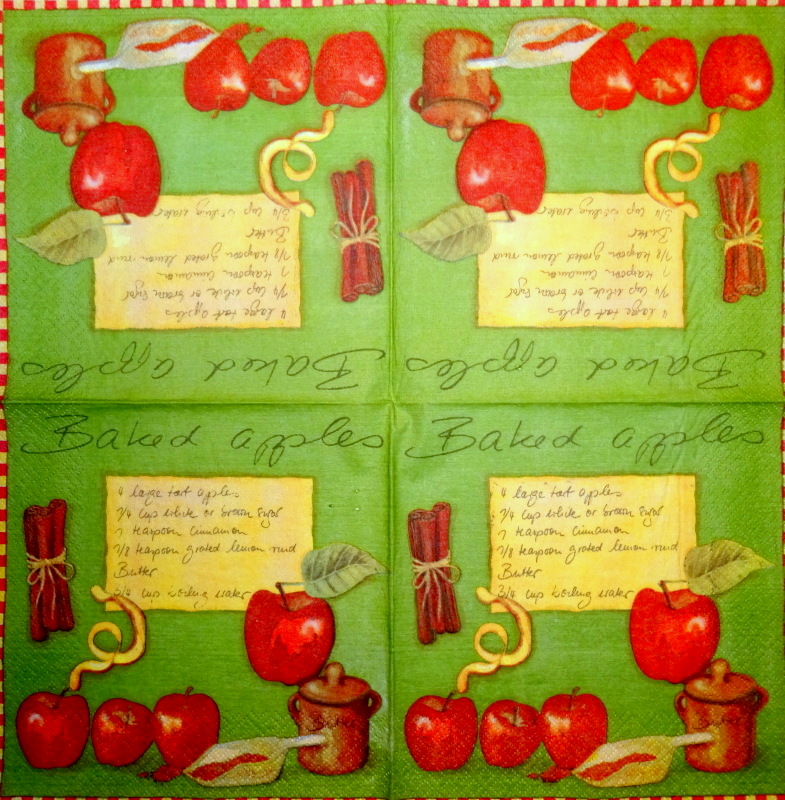 4 large tart apples
3/4 cup boiling water
Butter
1/8 teaspoon grated lemon rind
1 teaspoon cinnamon
1/4 cup white or brown sugar
4 large tart apples
Baked apples
3/4 cup boiling water
Butter
1/8 teaspoon grated lemon rind
1 teaspoon cinnamon
1/4 cup white or brown sugar
4 large tart apples
Baked apples
Baked apples
4 large tart apples
1/4 cup white or brown sugar
1 teaspoon cinnamon
1/8 teaspoon grated lemon rind
Butter
3/4 cup boiling water
Baked apples
4 large tart apples
1/4 cup white or brown sugar
1 teaspoon cinnamon
1/8 teaspoon grated lemon rind
Butter
3/4 cup boiling water